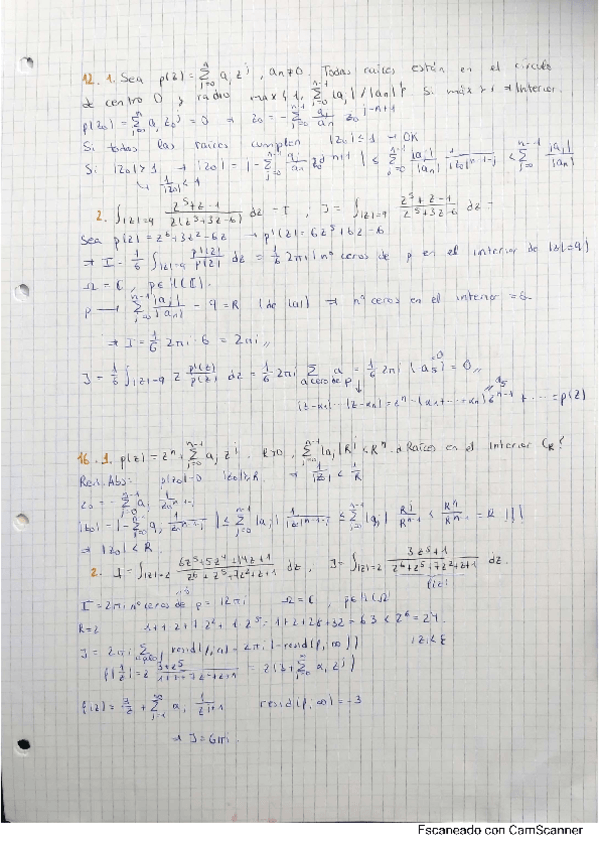 12. 1. Sea p(z) = Σ_{j=0}^{n} a_j z^j, a_n ≠ 0. Todas raíces están en el círculo
de centro 0 y radio max{1, Σ_{j=0}^{n-1} |a_j|/|a_n|}. Si máx > 1 → Interior.
p(z_0) = Σ_{j=0}^{n} a_j z_0^j = 0 → z_0 = -Σ_{j=0}^{n-1} a_j/a_n z_0^{j-n+1}
Si todas las raíces cumplen |z_0| ≤ 1 → OK
Si |z_0| > 1 → |z_0| = |-Σ_{j=0}^{n-1} a_j/a_n z_0^{j-n+1}| ≤ Σ_{j=0}^{n-1} |a_j|/|a_n| 1/|z_0|^{n-1-j} < Σ_{j=0}^{n-1} |a_j|/|a_n|
↳ 1/|z_0| < 1
2. ∫_{|z|=9} (z^5+z-1)/(z(z^5+3z-6)) dz = I ; J = ∫_{|z|=9} (z^5+z-1)/(z^5+3z-6) dz =
Sea p(z) = z^6+3z^2-6z → p'(z) = 6z^5+6z-6
⇒ I = 1/6 ∫_{|z|=9} p'(z)/p(z) dz = 1/6 2πi (nº ceros de p en el interior de |z|=9)
Ω = ℂ, p∈H(ℂ).
p → Σ_{j=0}^{n-1} |a_j|/|a_n| = 9 = R (de (a)) ⇒ nº ceros en el interior = 6
⇒ I = 1/6 2πi · 6 = 2πi,,
J = 1/6 ∫_{|z|=9} z p'(z)/p(z) dz = 1/6 2πi Σ_{a cero de p} a = 1/6 2πi (a_5) = 0,,
(z-α_1)···(z-α_n) = z^n - (α_1+···+α_n) z^{n-1} + ··· = p(z)
16. 1. p(z) = z^n + Σ_{j=0}^{n-1} a_j z^j. R>0, Σ_{j=0}^{n-1} |a_j|R^j < R^n. ¿Raíces en el interior C_R?
Red. Abs: p(z_0) = 0 |z_0| ≥ R → 1/|z| ≤ 1/R
z_0 = -Σ_{j=0}^{n-1} a_j 1/z_0^{n-1-j}
|z_0| = |-Σ_{j=0}^{n-1} a_j 1/z_0^{n-1-j}| ≤ Σ_{j=0}^{n-1} |a_j| 1/|z|^{n-1-j} ≤ Σ_{j=0}^{n-1} |a_j| R^j/R^{n-1} < R^n/R^{n-1} = R !!!
⇒ |z_0| < R
2. I = ∫_{|z|=2} (6z^5+5z^4+14z+1)/(z^6+z^5+7z^2+z+1) dz, J = ∫_{|z|=2} (3z^5+1)/(z^6+z^5+7z^2+z+1) dz.
I = 2πi · nº ceros de p = 12πi Ω = ℂ, p∈H(Ω)
R=2
J = 2πi
f(z) = 3/z + Σ
resid(f,∞) = -3
→ J = 6πi.
Escaneado con CamScanner